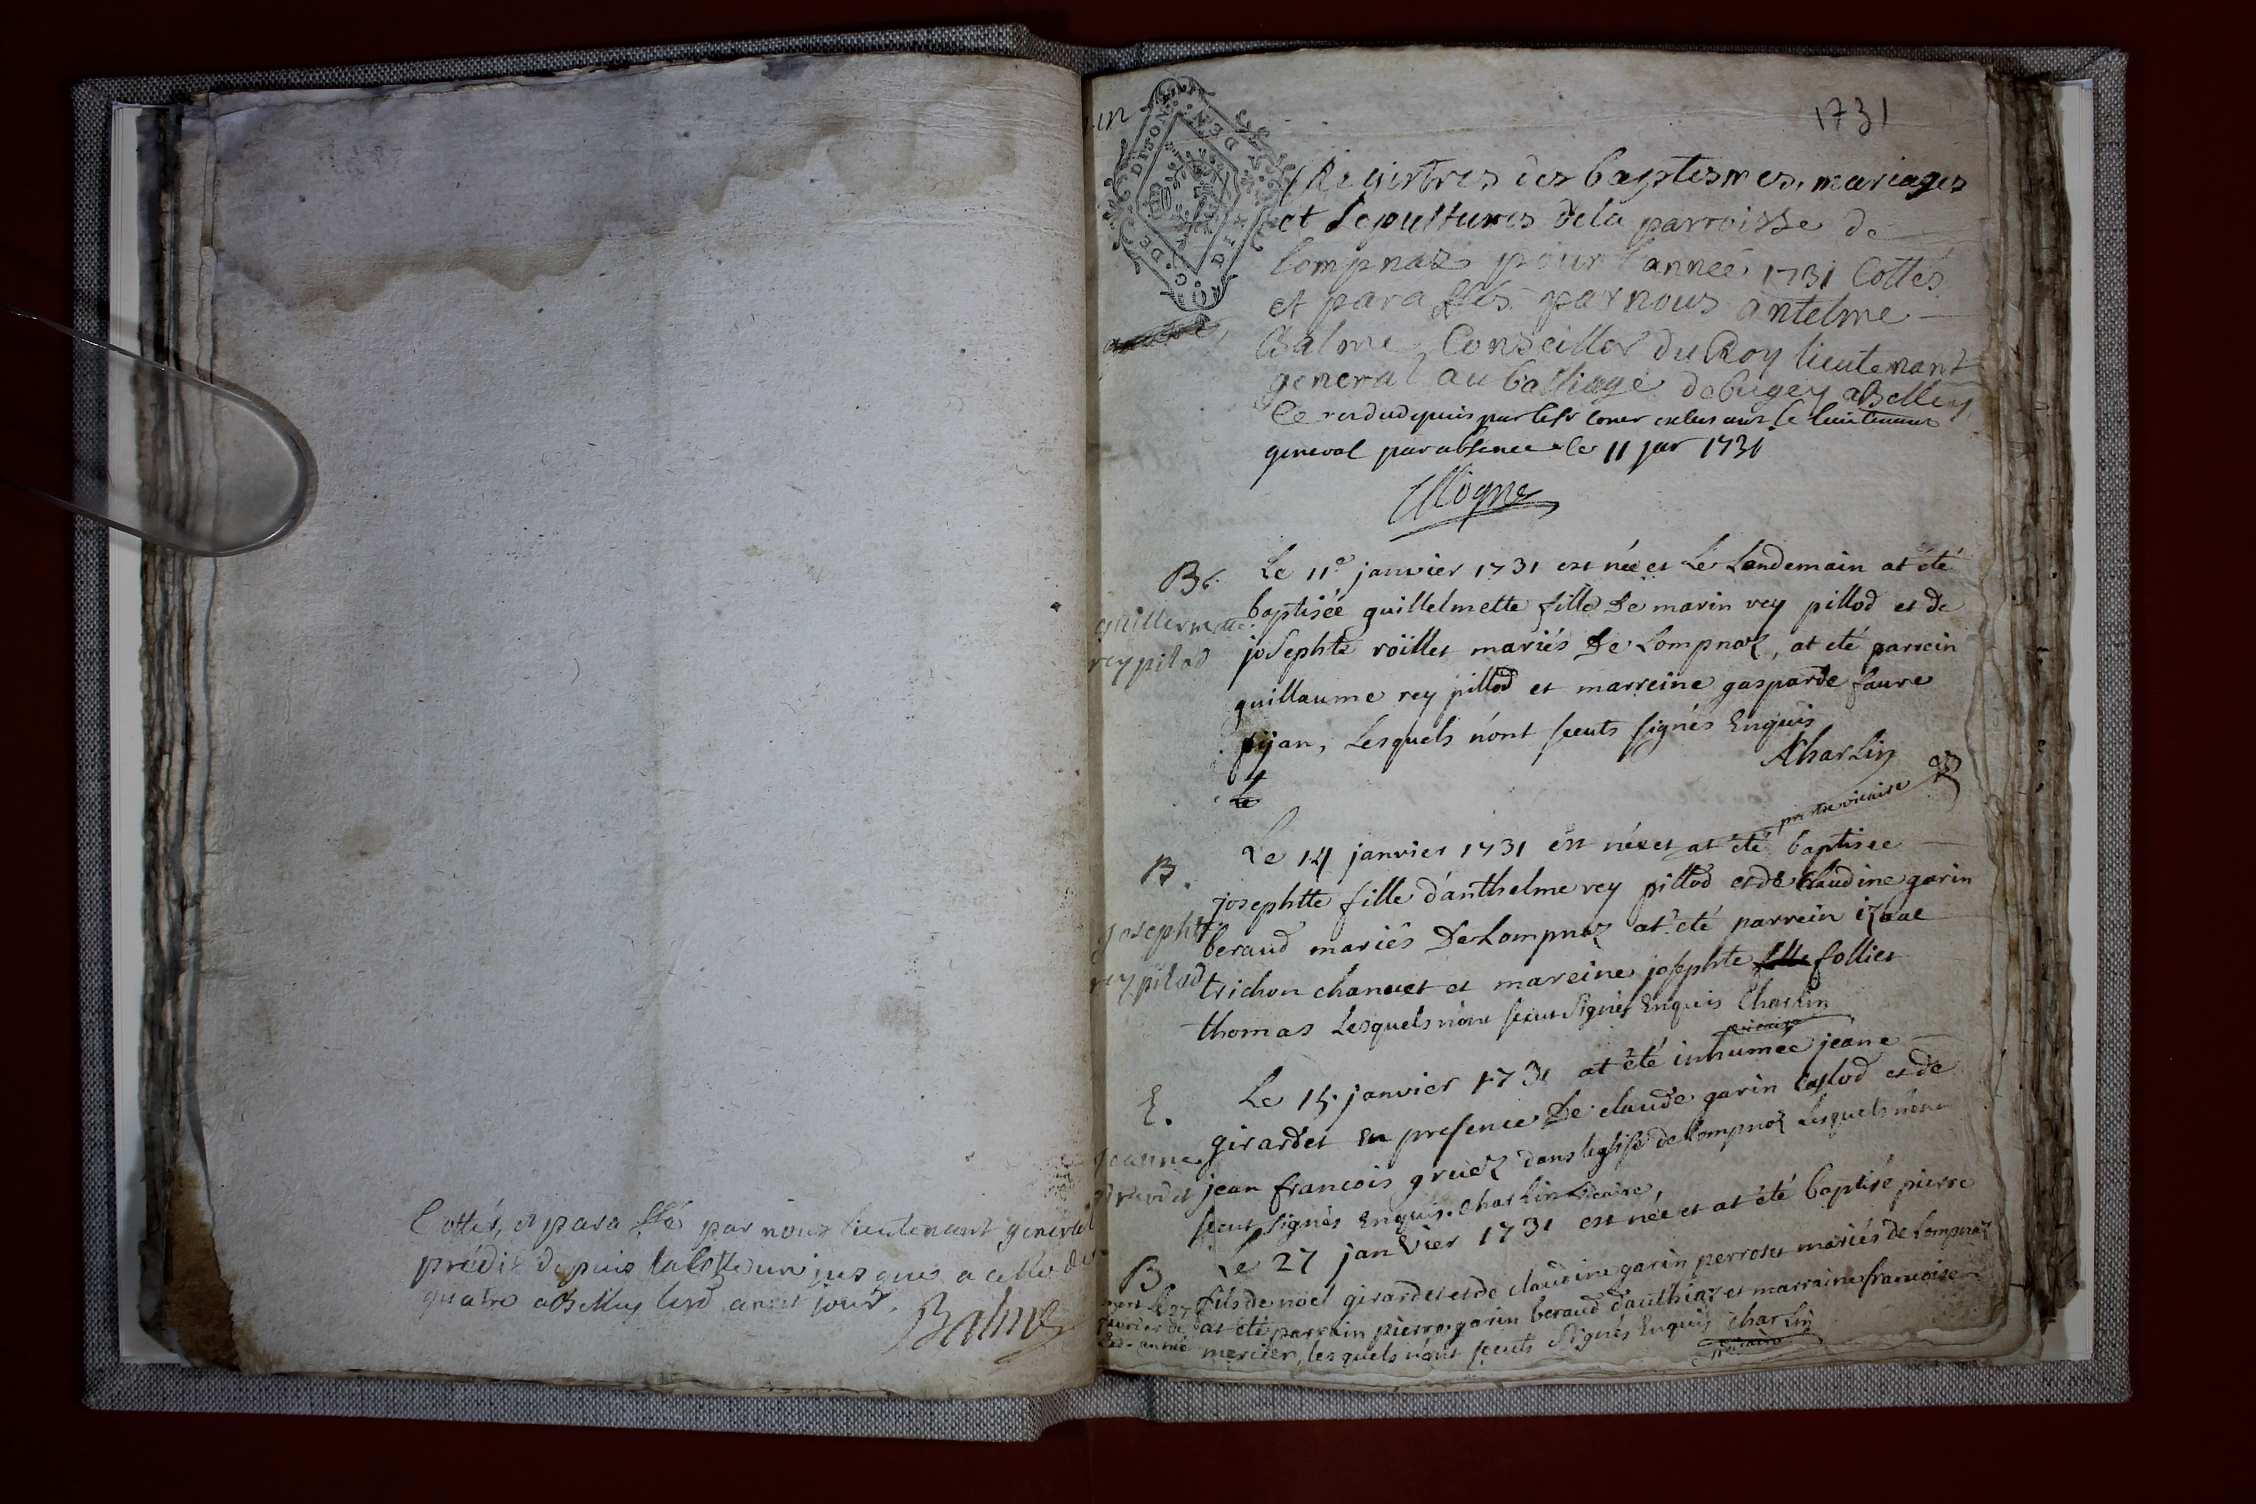 Cottés, et paraffé par nous lieutenant general
prédit depuis la cotte un jusques a celle de
quatre a Belley led. an et jour.
Balme
un
DIJON
1731
Registres des baptesmes, mariages
et sepultures de la parroisse de
Lompnaz pour l'année 1731 Cottés
et paraffés par nous antelme
Balme Conseiller du Roy lieutenant
general au balliage de bugey a Belley
general par absence le 11 jar 1731
B.
guillermette
rey pilod
Le 11e janvier 1731 est née et Le Landemain at été
baptisée guillelmette fille De marin rey pillod et de
josephte roillet mariés De Lompnaz, at été parrein
guillaume rey pillod et marreine gasparde faure
pijan, Lesquels n'ont sceuts signés Enquis
Charlin
prêtre vicaire
B.
josephte
rey pilod
Le 14 janvier 1731 est née et at été baptisée
josephtte fille d'anthelme rey pillod et de Claudine garin
beraud mariés De Lompnaz at été parrein izaac
trichon chanuet et mareine josephte follier
thomas Lesquels n'ont sceut signés Enquis Charlin
vicaire
E.
jeanne
girardet
Le 15. janvier 1731 at été inhumée jeane
girardet en presence De claude garin caslod et de
jean francois gruez dans leglise de Lompnaz Lesquels n'ont
sceut signés Enquis. Charlin vicaire,
B.
mort le 27
Le 27 janvier 1731 est née et at été baptisé pierre
fils de noel girardet et de claudine garin perroset mariés de Lompnaz
at été parrain pierre garin beraud dauthiaz et marraine francoise
mercier, lesquels n'ont sceuts signés Enquis Charlin
vicaire